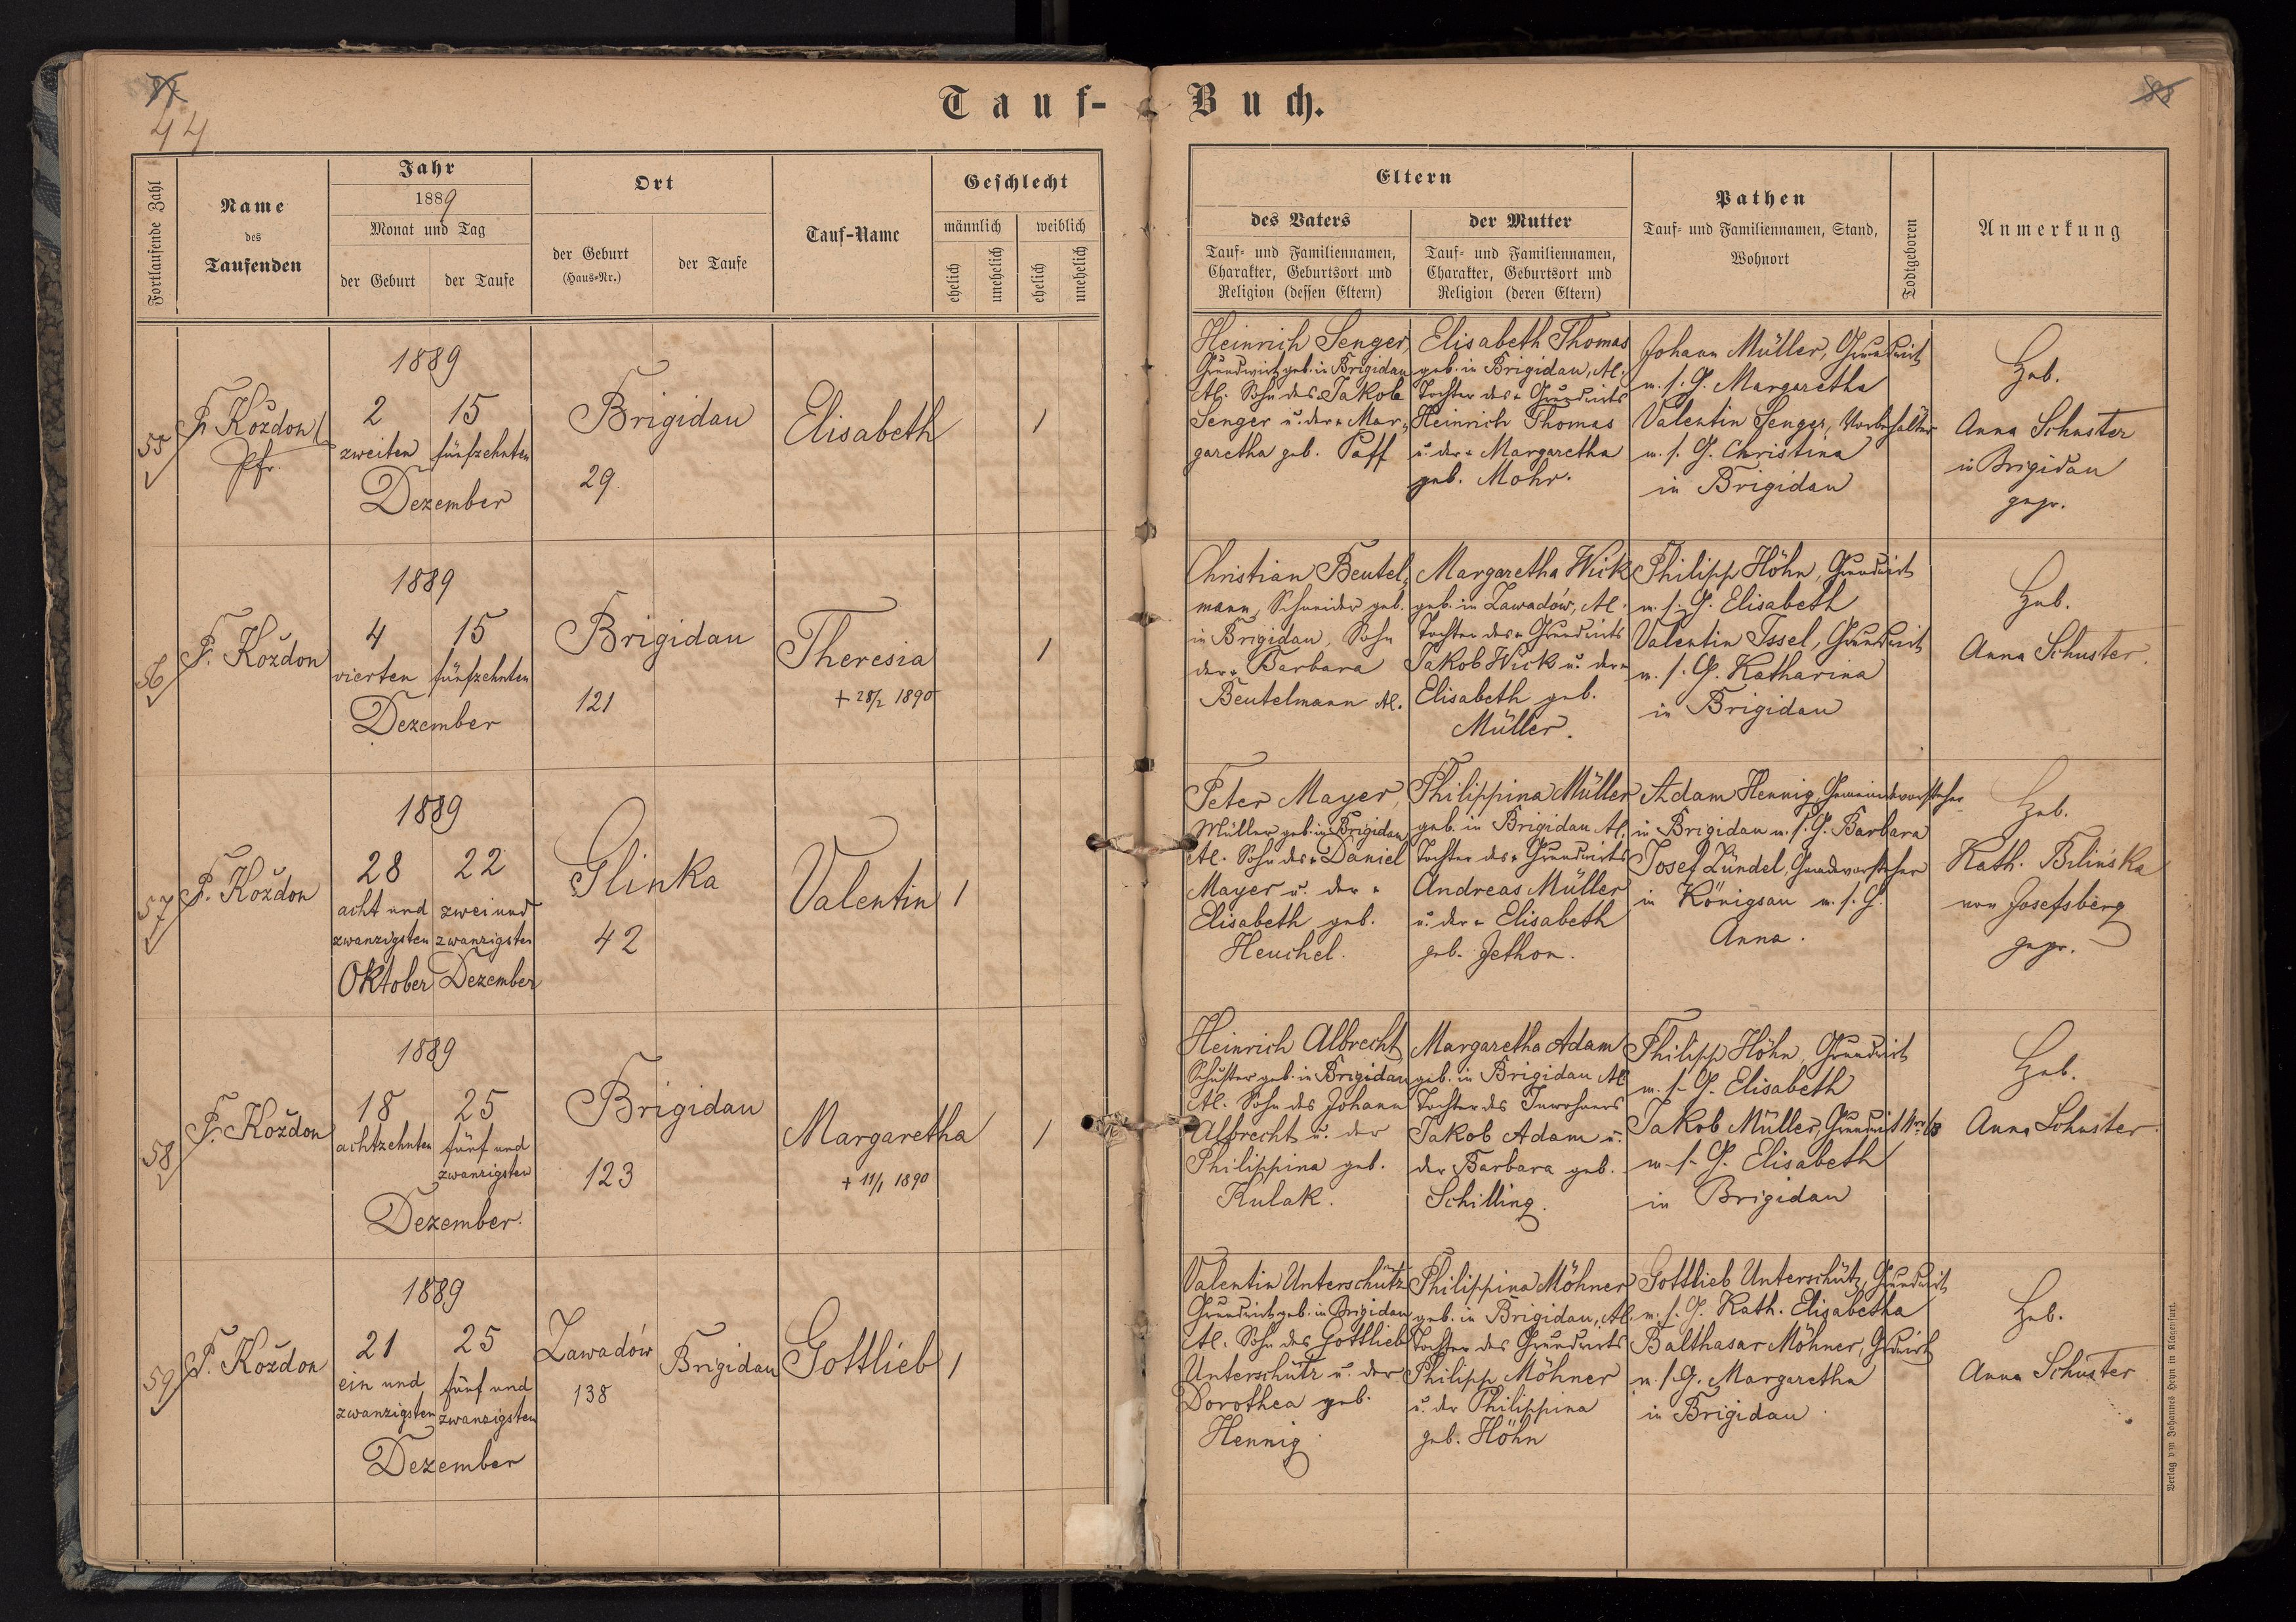 87
44
Tauf-Buch.
88
Fortlaufende Zahl
Name
des
Taufenden
Jahr
1889
Monat und Tag
der Geburt
der Taufe
Ort
der Geburt
(Haus-Nr.)
der Taufe
Tauf-Name
Geschlecht
männlich
weiblich
ehelich
unehelich
ehelich
unehelich
Eltern
des Vaters
Tauf- und Familiennamen,
Charakter, Geburtsort und
Religion (dessen Eltern)
der Mutter
Tauf- und Familiennamen,
Charakter, Geburtsort und
Religion (deren Eltern)
Pathen
Tauf- und Familiennamen, Stand,
Wohnort
Todtgeboren
Anmerkung
55
F. Koždon
Pfr.
1889
2 15
zweiten fünfzehnten
Dezember
Brigidau
29.
Elisabeth
1
Heinrich Senger,
Grundwirt geb. in Brigidau
Al. Sohn des Jakob
Senger u. der Mar-
garetha geb. Paff
Elisabeth Thomas
geb. in Brigidau, Al.
Tochter des Grundwirts
Heinrich Thomas
u. der Margaretha
geb. Mohr.
Johann Müller, Grundwirt
m. s. G. Margaretha
Valentin Senger, Vorbehälter
m. s. G. Christina
in Brigidau
Heb.
Anna Schuster
in Brigidau
gepr.
56
F. Koždon
1889
4 15
vierten fünfzehnten
Dezember
Brigidau
121
Theresia
+ 28/2 1890
1
Christian Beutel-
mann, Schneider geb.
in Brigidau, Sohn
der Barbara
Beutelmann Al.
Margaretha Wick
geb. in Zawadów, Al.
Tochter des Grundwirts
Jakob Wick u. der
Elisabeth geb.
Müller.
Philipp Höhn, Grundwirt
m. s. G. Elisabeth
Valentin Issel, Grundwirt
m. s. G. Katharina
in Brigidau
Heb.
Anna Schuster.
57
F. Koždon
1889
28 22
acht und zwei und
zwanzigsten zwanzigsten
Oktober Dezember
Glinka
42
Valentin
1
Peter Mayer,
Müller geb. in Brigidau,
Al. Sohn des Daniel
Mayer u. der
Elisabeth geb.
Heuchel.
Philippina Müller
geb. in Brigidau Al.
Tochter des Grundwirts
Andreas Müller
u. der Elisabeth
geb. Jethon.
Adam Hennig, Gemeindevorsteher
in Brigidau m. s. G. Barbara
Josef Zündel, Gmdevorsteher
in Königsau m. s. G.
Anna.
Heb.
Kath. Bilińska
von Josefsberg
gepr.
58
F. Koždon
1889
18 25
achtzehnten fünf und
zwanzigsten
Dezember.
Brigidau
123
Margaretha
+ 11/1 1890
1
Heinrich Albrecht
Schuster geb. in Brigidau
Al. Sohn des Johann
Albrecht u. der
Philippina geb.
Kulak.
Margaretha Adam
geb. in Brigidau Al
Tochter des Inwohners
Jakob Adam u.
der Barbara geb.
Schilling.
Philipp Höhn, Grundwirt
m. s. G. Elisabeth
Jakob Müller, Grundwirt
m. s. G. Elisabeth
in Brigidau
Heb.
Anna Schuster.
59
F. Koždon
1889
21 25
ein und fünf und
zwanzigsten zwanzigsten
Dezember
Zawadów
138
Brigidau
Gottlieb
1
Valentin Unterschütz
Grundwirt geb. in Brigidau
Al. Sohn des Gottlieb
Unterschütz u. der
Dorothea geb.
Hennig.
Philippina Möhner
geb. in Brigidau, Al.
Tochter des Grundwirts
Philipp Möhner
u. der Philippina
geb. Höhn
Gottlieb Unterschütz, Grundwirt
m. s. G. Kath. Elisabetha
Balthasar Möhner, Gdwirt
m. s. G. Margaretha
in Brigidau.
Heb.
Anna Schuster
Verlag von Johannes Heyn in Klagenfurt.